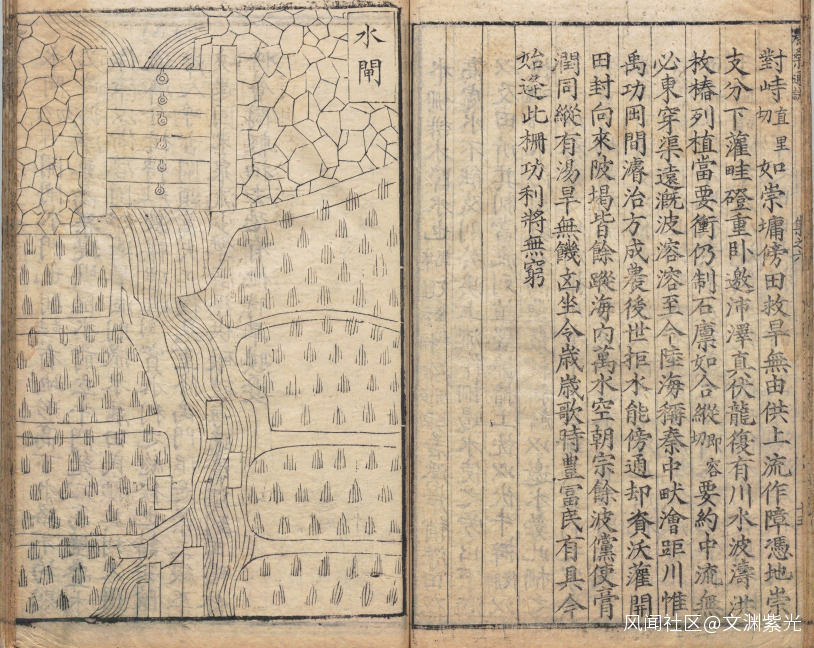 對峙直里切如崇墉傍田救旱無由供上流作障憑地崇
支分下灌畦磴重卧邀沛澤真伏龍復有川水波濤洪
枚樁列植當要衝仍制石廩如合縱即容切要約中流無
必東穿渠遠溉波溶溶至今陸海稱秦中畎澮距川惟
禹功田間濬治方成農後世拒水能傍通却資沃灌開
田封向來陂堨皆餘蹤海內萬水空朝宗餘波儻使膏
潤同縱有湯旱無饑凶坐令歲歲歌時豐富民有具今
始逢此柵功利將無窮
水閘
风闻社区@文渊紫光